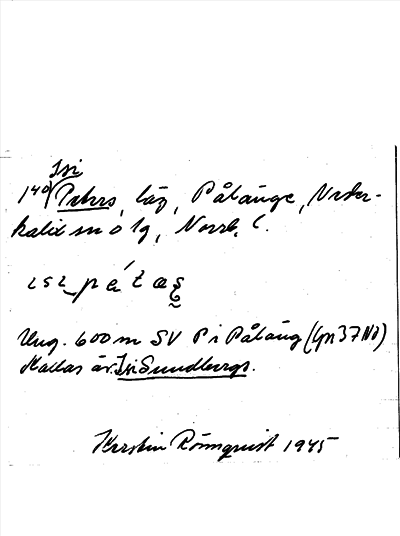 Isi
140) Petters, läg, Pålänge, Neder-
kalix sn o lg, Norrb. l.
ısı pétas
Ung. 600 m SV P i Påläng (Gn 37 Nd)
Kallas äv. Isi Sundbergs.
Kerstin Rönnquist 1945